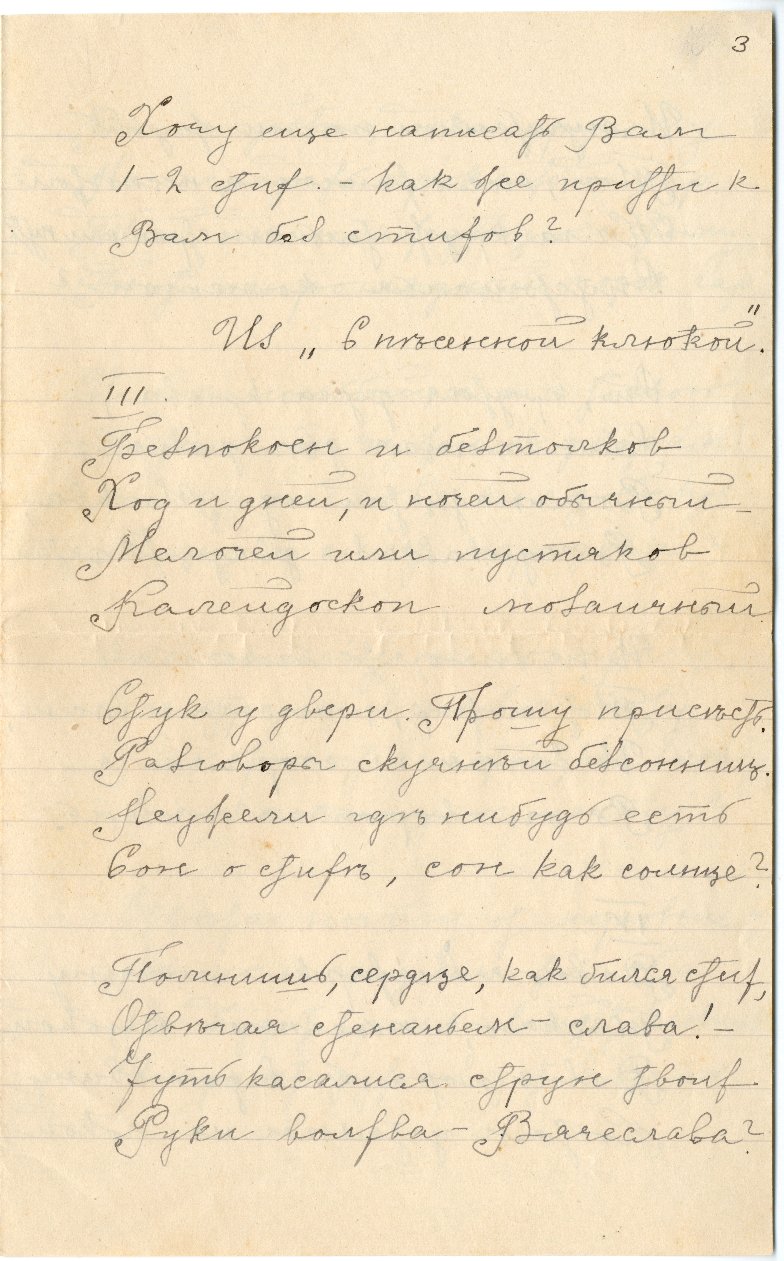 3
Хочу еще написать Вам
1-2 стих. - как же придти к
Вам без стихов?
Из „С пѣсенной клюкой".
III
Безпокоен и безтолков
Ход и дней, и ночей обычный -
Мелочей или пустяков
Калейдоскоп мозаичный
Стук у двери. Прошу присѣсть.
Разговоры скучнѣй безсонниц.
Неужели гдѣ нибудь есть
Сон о стихѣ, сон как солнце?
Помнишь, сердце, как бился стих,
Отвѣчая стенаньем - слава! -
Чуть касалися струн твоих
Руки волхва - Вячеслава?